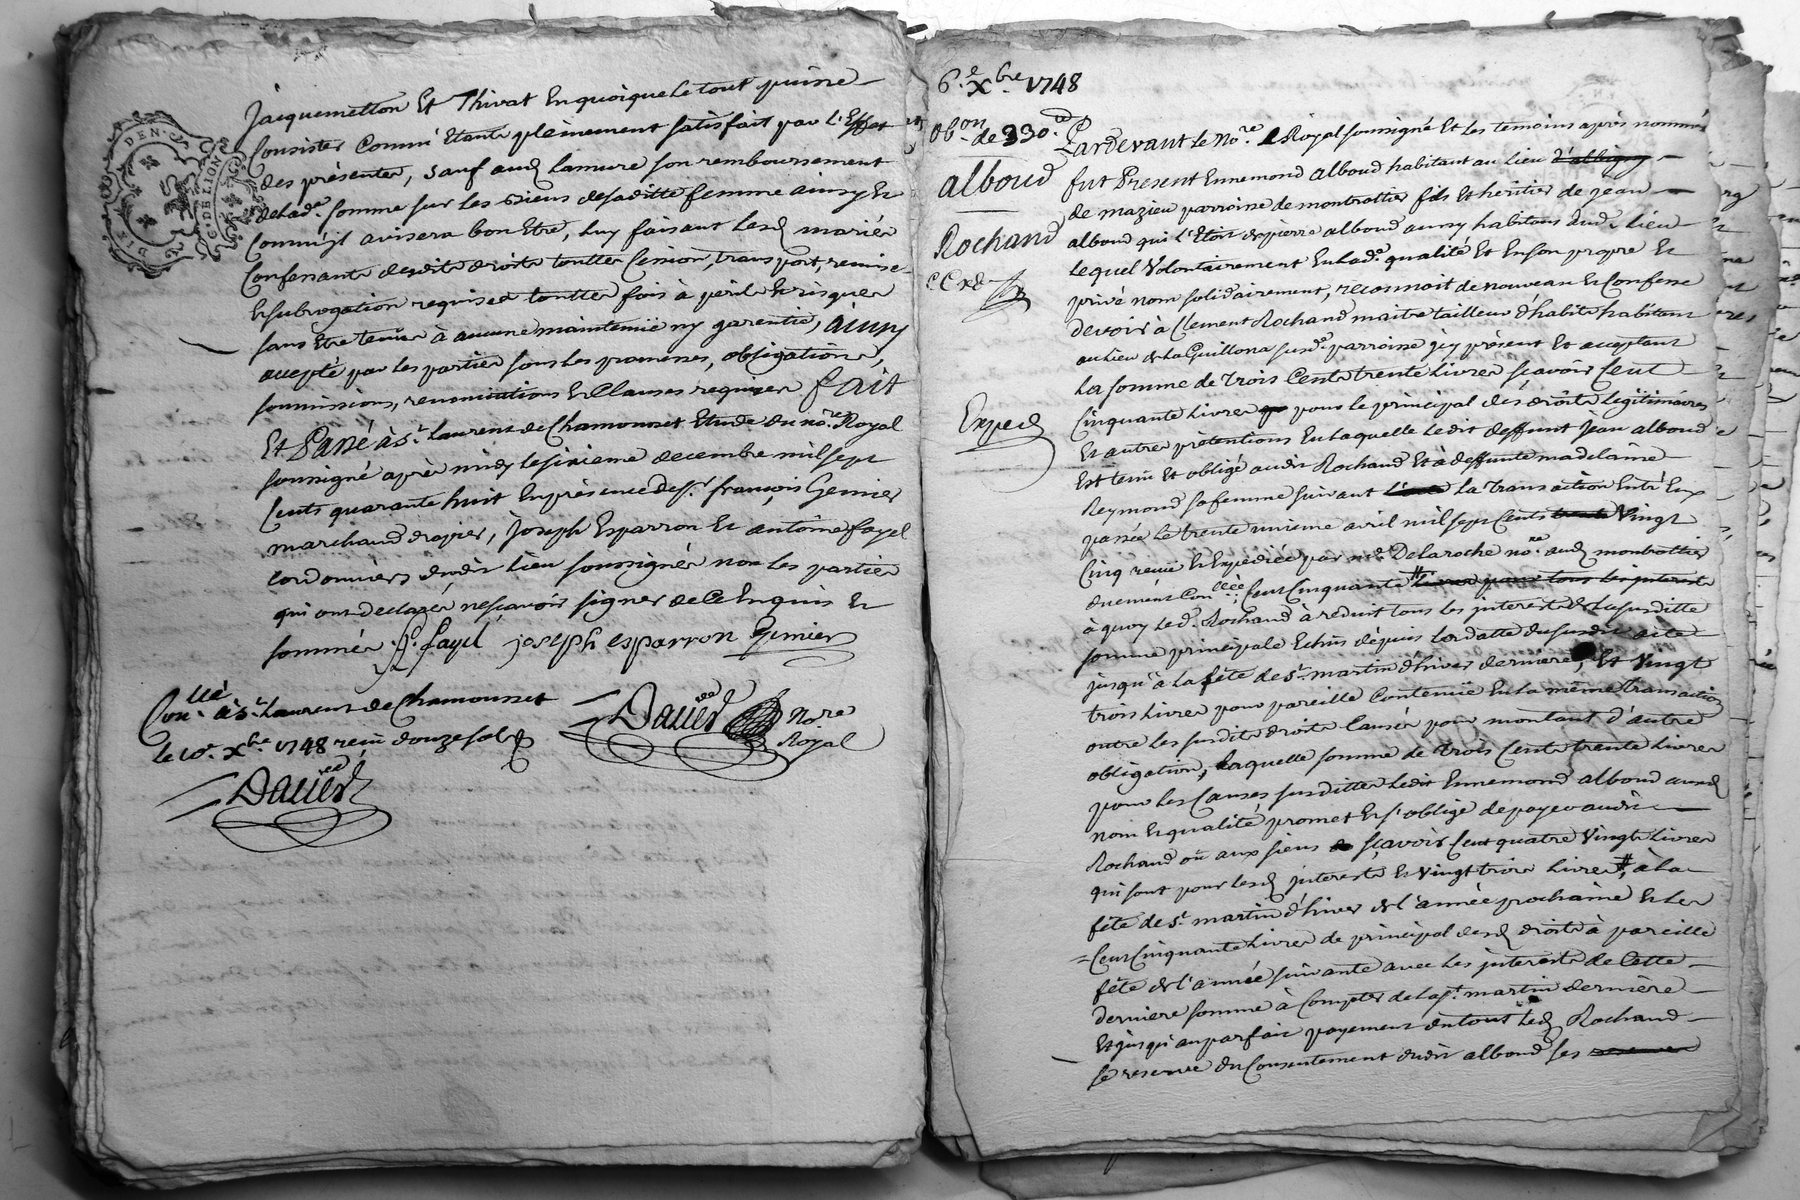 Jacquemetton Et Thivat En quoique le tout puisse
Consister Comm'Etants pleinement satisfait par l'Effet
des présentes, sauf aud. Lamure son remboursement
de lad.e somme sur les Biens de saditte femme ainsy Et
Comm'il avisera bon Etre, luy faisant lesd. mariés
Consenants desdits droits touttes Cession, transport, remise
Et subrogation requises touttes fois à peril Et risques
sans Etre tenus à aucune maintenüe ny garentie, ainsy
accepté par les parties sous les promesses, obligations,
soumissions, renonciations Et Clauses requises fait
Et Passé à S.t Laurent de Chamousset Etude du no.re Royal
soussigné après midy le sixieme decembre mil sept
Cents quarante huit En présence de S.r françois Genier
marchand drapier, Joseph Esparron Et antoine fayel
Cordonniers dudit lieu soussignés non les parties
qui ont declaré ne sçavoir signer de ce Enquis Et
sommés. A. fayel joseph esparron Genier
Con.llé à S.t Laurent de Chamousset
le 10.e X.bre 1748 reçu douze sols
Davier
Davier No.re
Royal
DIE DEN. C.
G. DE LION
6.e X.bre 1748
Ob.on de 330.#
alboud
Rochand
Exped
Pardevant le No.re Royal soussigné Et les temoins après nommés
fut Present Ennemond alboud habitant au lieu d'albigny
de mazieu parroisse de montrottier fils Et heritier de jean
alboud qui l'Etoit de pierre alboud aussy habitans aud. lieu
lequel Volontairement En lad.e qualité Et En son propre Et
privé nom solidairement, reconnoit de nouveau Et Confesse
devoir à Clement Rochand maitre tailleur d'habits habitant
au lieu de la Guillona susd.e parroisse icy présent Et acceptant
la somme de trois Cents trente livres sçavoir Cent
Cinquante livres pour le principal des droits legitimaires
Et autres prétentions En laquelle ledit deffunt jean alboud
Est tenu Et obligé audit Rochand Et à deffunte madelaine
Reymond sa femme suivant la transaction Entr'Eux
passée le trente unieme avril mil sept Cents trente Vingt
Cinq reçüe Et Expediée par m.e Delaroche no.re aud. montrottier
duement Con.llée, Cent Cinquante # livres pour tous les interests
à quoy led. Rochand à reduit tous les interests de la susditte
somme principale Echus depuis la datte du susdit acte
jusqu'à la fête de S.t martin d'hiver derniere, Et Vingt
trois livres pour pareille Contenüe En la même transaction
outre les susdits droits Causés pour montant d'autre
obligation, laquelle somme de trois Cents trente livres
pour les Causes susdittes ledit Ennemond alboud ausd.
nom Et qualité promet Et s'oblige de payer audit
Rochand ou aux siens sçavoir Cent quatre Vingts livres
qui sont pour lesd. interests Et Vingt trois livres #, à la
fête de S.t martin d'hiver de l'année prochaine Et les
Cent Cinquante livres de principal desd. droits à pareille
fête de l'année suivante avec les interests de Cette
derniere somme à Compter de la S.t martin derniere
Et jusqu'au parfait payement du tout led. Rochand
se reserve du Consentement dudit alboud ses